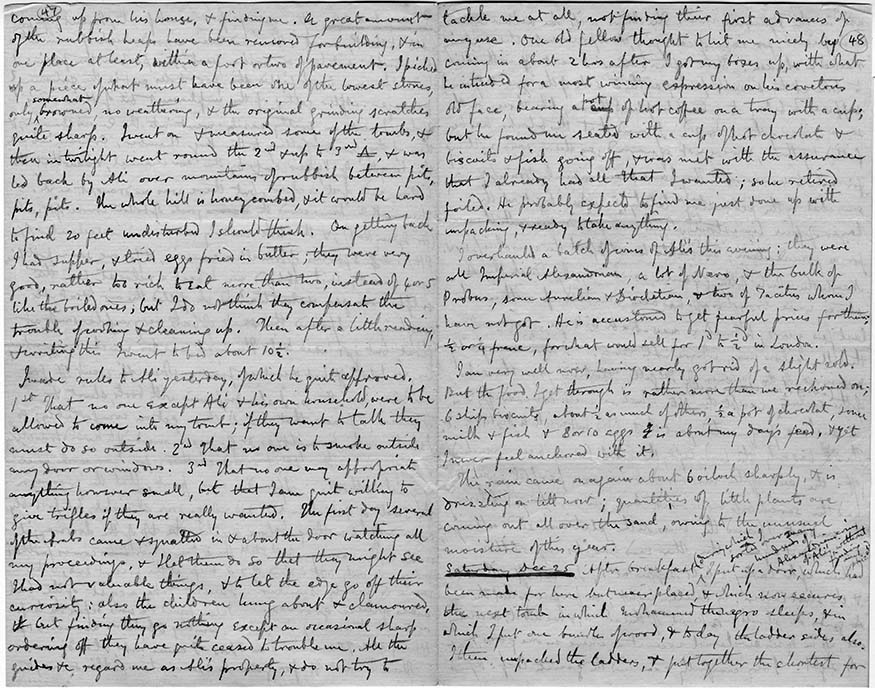 47
coming up from his house, & finding me. A great amount
of the rubbish heaps have been removed for building, & in
one place at least, within a foot or two of pavement. I picked
up a piece of what must have been one of the lowest stones,
only somewhat browned, no weathering, & the original grinding scratches
quite sharp. I went on & measured some of the tombs, &
then in twilight went round the 2nd & up to 3rd △, & was
led back by Ali over mountains of rubbish between pits,
pits, pits. The whole hill is honeycombed, & it would be hard
to find 20 feet undisturbed I should think. On getting back
I had supper, & tried eggs fried in butter; they were very
good, rather too rich to eat more than two, instead of 4 or 5
like the boiled ones; but I do not think they compensate the
trouble of cooking & cleaning up. Then after a little reading,
& writing this I went to bed about 10½.
I made rules to Ali yesterday, of which he quite approved.
1st That no one except Ali & his own household, were to be
allowed to come into my tomb; if they want to talk they
must do so outside. 2nd That no one is to smoke outside
any door or windows. 3rd That no one may appropriate
anything however small, but that I am quite willing to
give trifles if they are really wanted. The first day several
of the Arabs came & squatted in & about the door watching all
my proceedings, & I let them do so that they might see
I had not valuable things, & to let the edge go off their
curiosity: also the children hung about & clamoured,
but finding they got nothing except an occasional sharp
ordering off they have quite ceased to trouble me. All the
guides &c, regard me as Ali's property, & do not try to
48
tackle me at all, not finding their first advances of
any use. One old fellow thought to hit me nicely by
coming in about 2 hrs after I got my boxes up, with what
he intended for a most winning expression on his covetous
old face, bearing a pot of hot coffee on a tray with a cup;
but he found me seated with a cup of hot chocolate &
biscuits & fish going off, & was met with the assurance
that I already had all that I wanted; so he retired
foiled. He probably expected to find me just done up with
unpacking, & ready to take anything.
I overhauled a batch of coins of Ali's this evening: they were
all Imperial Alexandrian, a lot of Nero, & the bulk of
Probus, some Aurelian & Diocletian, & two of Tacitus whom I
have not got. He is accustomed to get fearful prices for them;
½ or ¼ franc, for what would sell for 1d to ½d in London.
I am very well now, having nearly got rid of a slight cold.
But the food I get through is rather more than we reckoned on;
6 ship biscuits, about ½ as much of others, ½ a pot of chocolat, some
milk & fish & 8 or 10 eggs is about my day's feed, & yet
I never feel anchored with it.
The rain came on again about 6 oclock sharply, & is
drizzling on till now; quantities of little plants are
coming out all over the sand, owing to the unusual
moisture of this year.
Saturday Dec 25 After breakfast, I put up a door, which had
been made for here but never placed, & which now secures
the next tomb in which Muhammed the negro sleeps, & in
which I put one bundle of wood, & to day the ladder sides also.
I then unpacked the ladders, & put together the shortest for